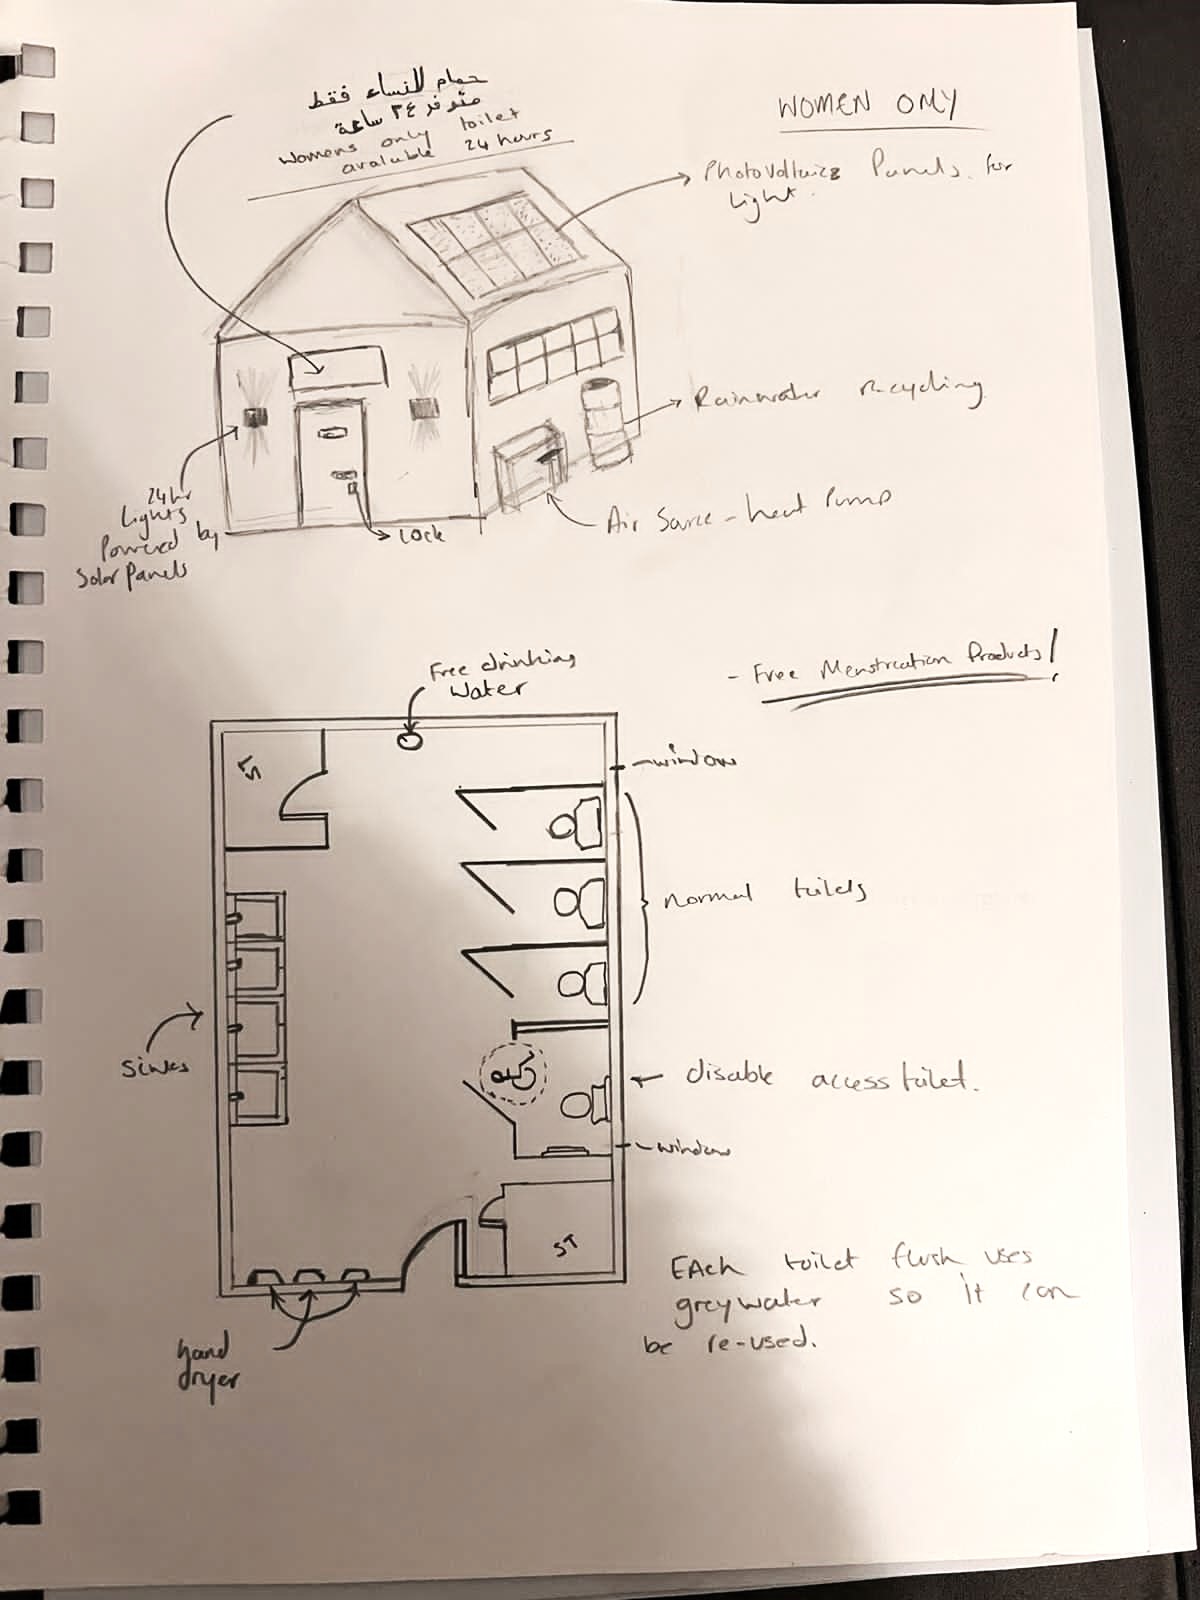 حمام للنساء فقط
متوفر ٢٤ ساعة
Womens only toilet
avaluble 24 hours
WOMEN ONLY
Photovoltaics Panels for
Light.
Rainwater recycling
Air Source-heat Pump
24hr
Lights
Powered by
Solar Panels
Lock
Free drinking
Water
- Free Menstruation Products!
window
ST
normal toilets
Sinks
disable access toilet.
window
ST
Each toilet flush uses
greywater so it can
be re-used.
hand
dryer